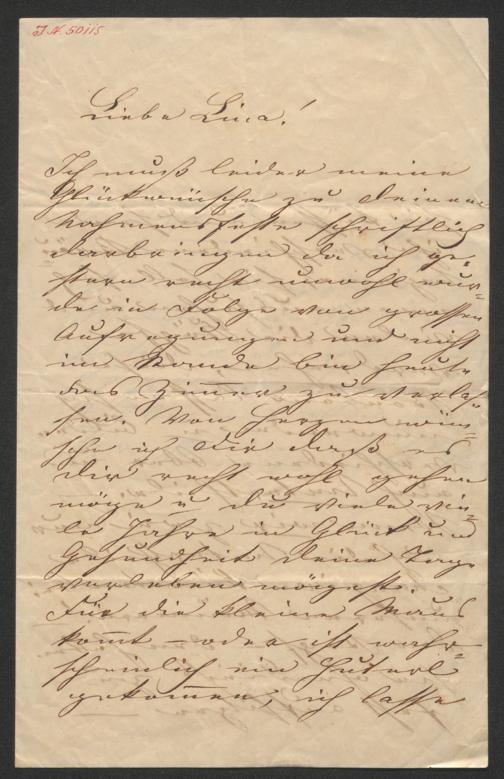 J.N. 50115
Liebe Lina!
Ich muß leider meine
Glückwünsche zu deinem
Nahmensfeste schriftlich
darbringen da ich ge-
stern recht unwohl wur-
de in Folge von grossen
Aufregungen und nicht
im Stande bin heute
das Zim̅er zu verlas-
sen. Von Herzen wün-
sche ich dir daß es
dir recht wohl gehen
möge u du viele vie-
le Jahre in Glück und
Gesundheit deine Tage
verleben mögest.
Für die kleine Maus
kom̅t – oder ist wahr-
scheinlich ein Huterl
gekom̅en, ich lasse